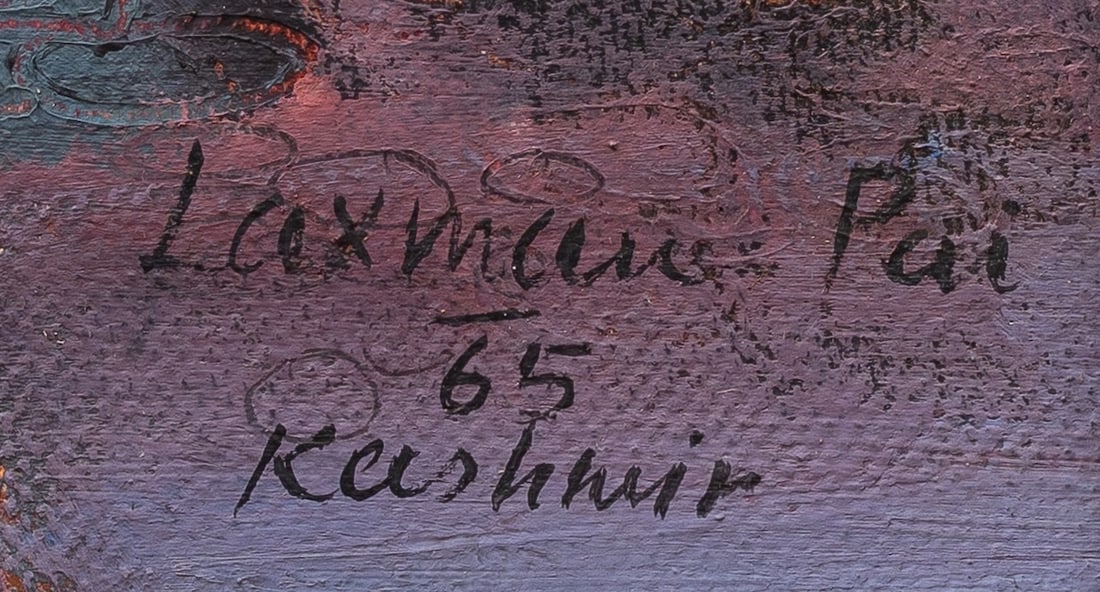 Laxman Pai
65
Kashmir